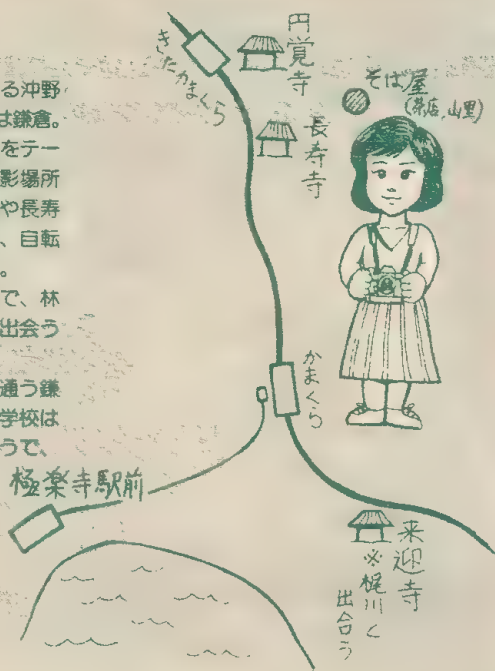 る沖野
は鎌倉。
をテー
影場所
や長寿
、自転
。
で、林
出会う
通う鎌
学校は
うで、
きたかまくら
円覚寺
長寿寺
そば屋
(茶店,山里)
かまくら
極楽寺駅前
来迎寺
※梶川と
出合う